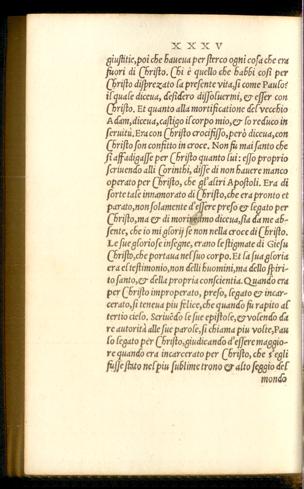 XXXV
giustitie, poi che haueua per sterco ogni cosa che era
fuori di Christo. Chi è quello che habbi così per
Christo disprezato la presente vita, si come Paulo?
il quale diceua, desidero dissoluermi, & esser con
Christo. Et quanto alla mortificatione del vecchio
Adam, diceua, castigo il corpo mio, & lo reduco in
seruitù, Era con Christo crocifisso, però diceua, con
Christo son confitto in croce. Non fu mai santo che
si affadigasse per Christo quanto lui: esso proprio
scriuendo alli Corinthi, disse di non hauere manco
operato per Christo, che gl'altri Apostoli. Era di
sorte tale innamorato di Christo, che era pronto et
parato, non solamente d'essere preso & legato per
Christo, ma & di morire diceua, sia da me ab-
sente, che io mi glorij se non nella croce di Christo.
Le sue gloriose insegne, erano le stigmate di Giesu
Christo, che portaua nel suo corpo. Et la sua gloria
era el testimonio, non delli huomini, ma dello spiri-
to santo, & della propria conscientia. Quando era
per Christo improperato, preso, legato & incar-
cerato, si teneua piu felice, che quando fu rapito al
tertio cielo. Scriuẽdo le sue epistole, & volendo da
re autorità alle sue parole, si chiama piu volte, Pau
lo legato per Christo, giudicando d'essere maggio-
re quando era incarcerato per Christo, che s'egli
fusse stato nel piu sublime trono & alto seggio del
mondo